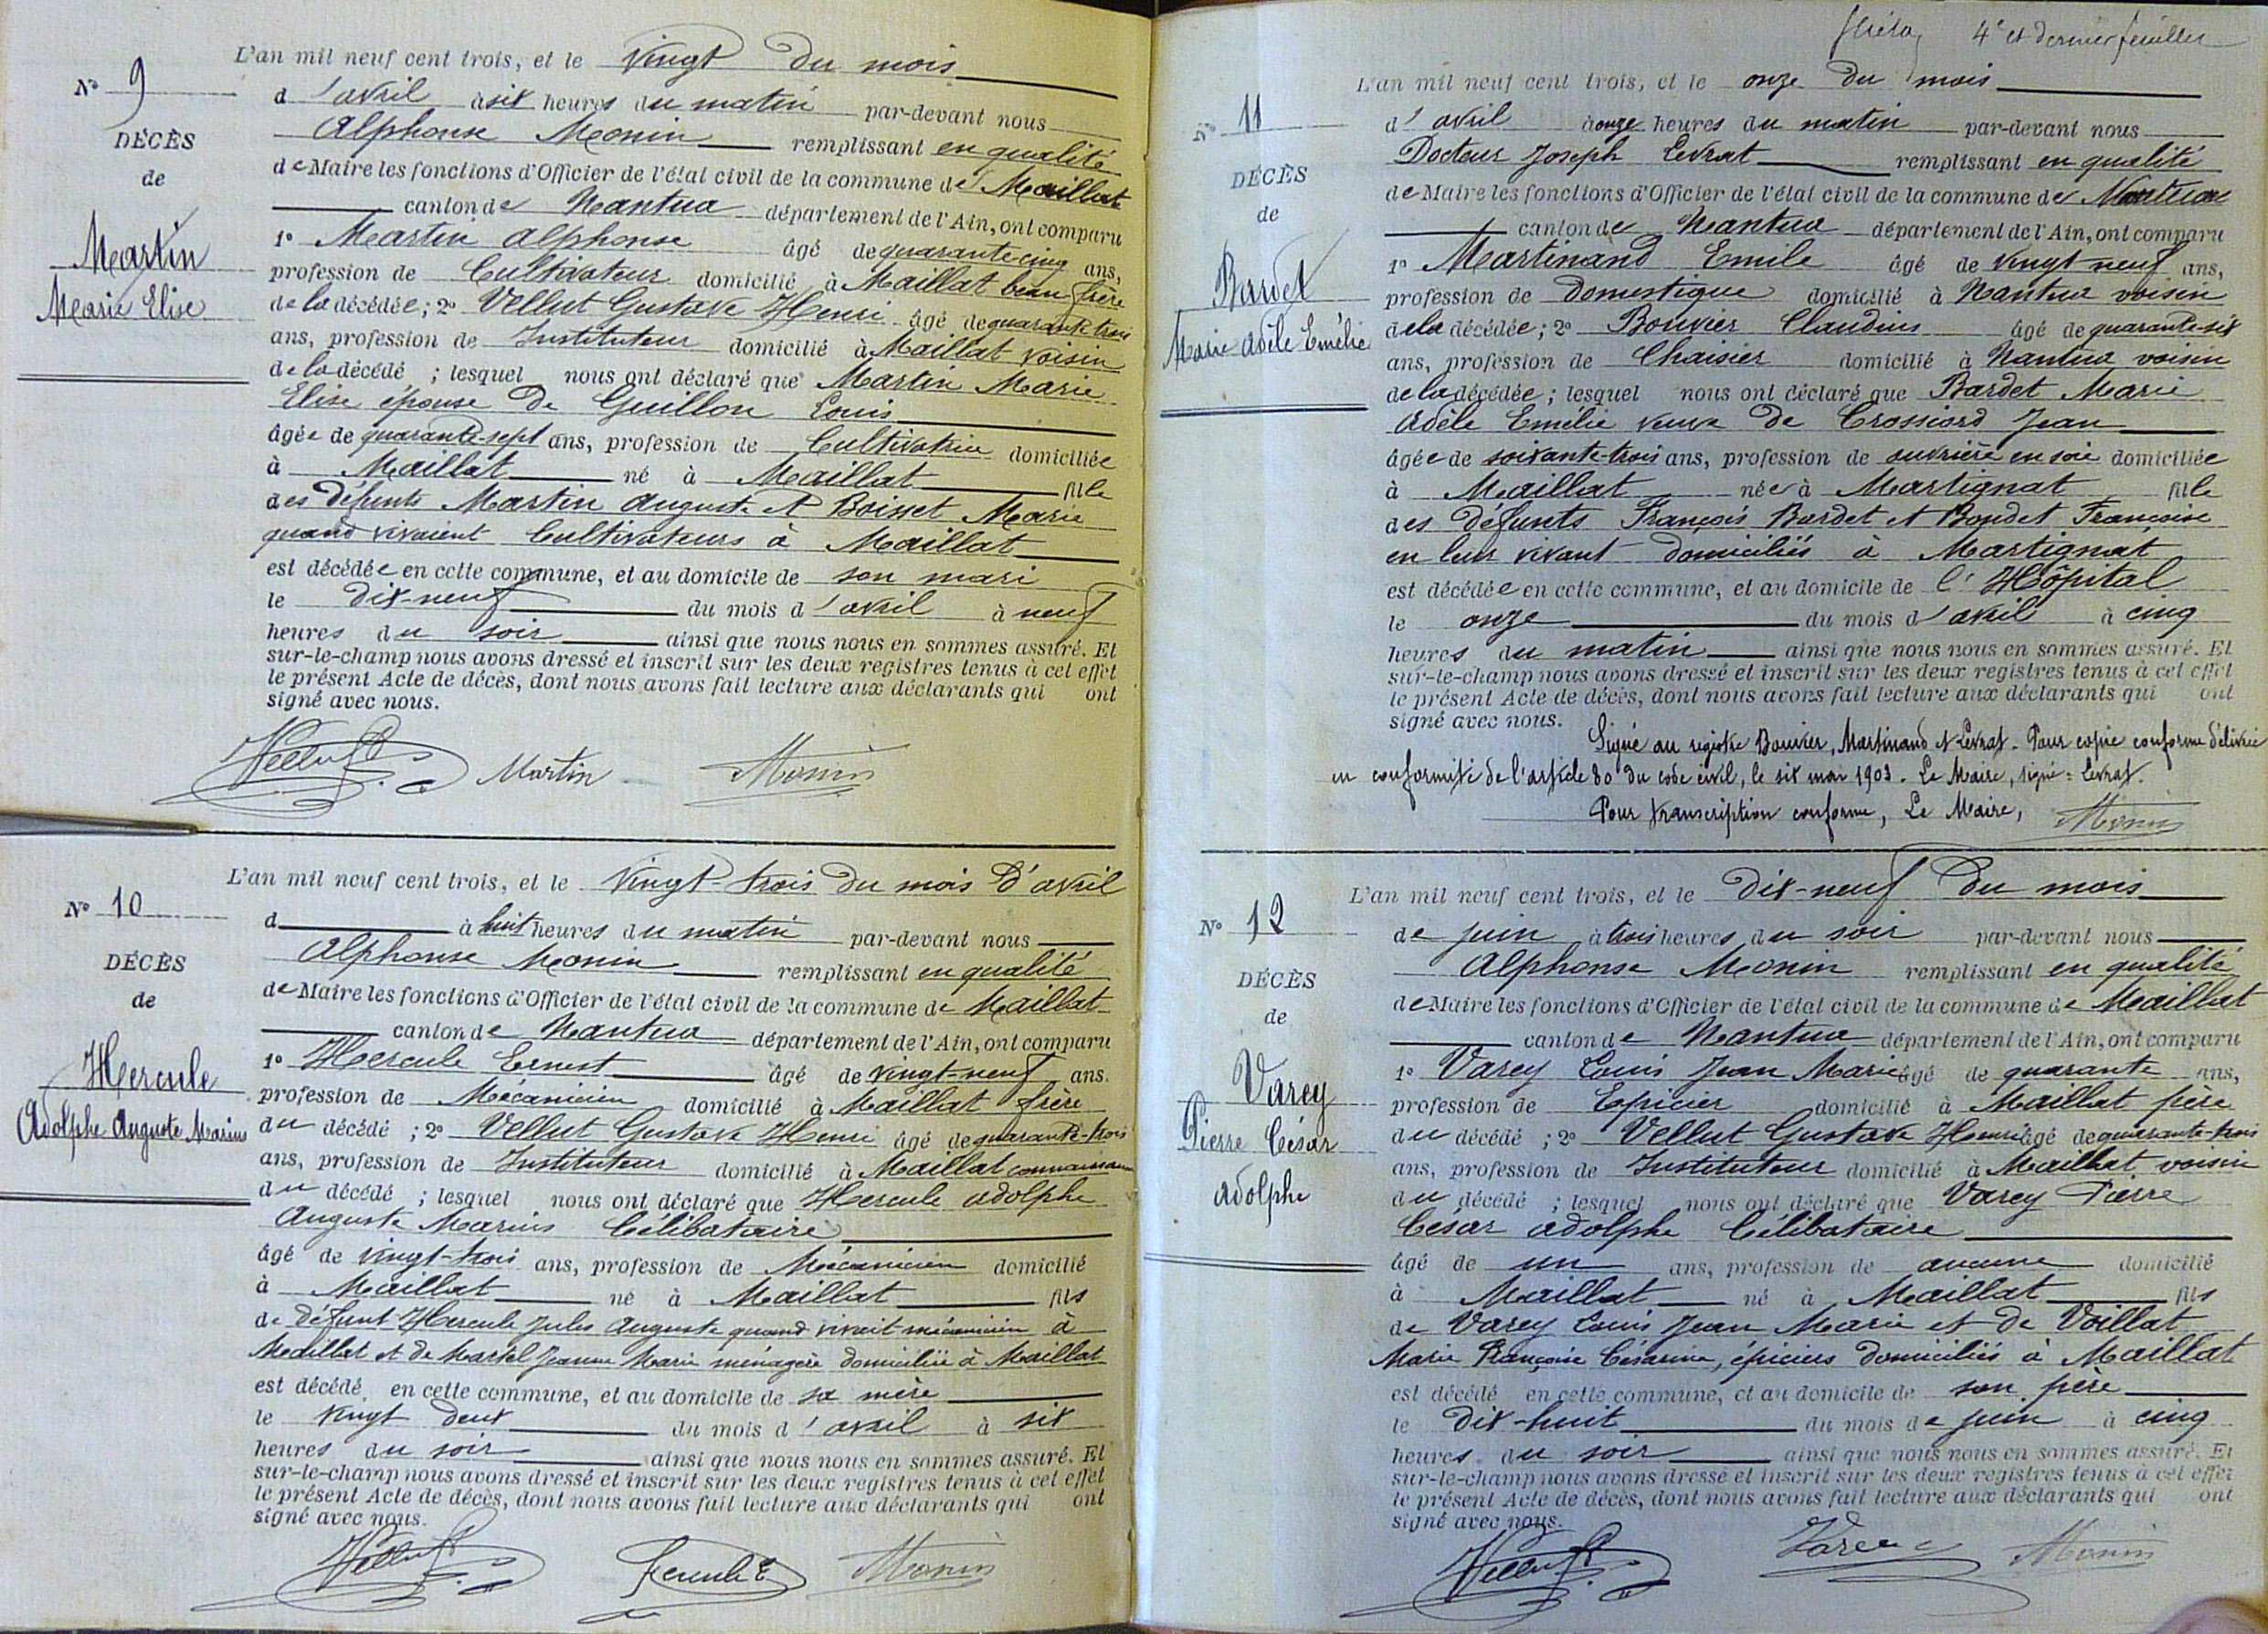 L'an mil neuf cent trois, et le vingt du mois
N° 9
d'avril à six heures du matin par-devant nous
Alphonse Monin remplissant en qualité
DÉCÈS
de Maire les fonctions d'Officier de l'état civil de la commune de Maillat
de
canton de Nantua département de l'Ain, ont comparu
Martin
1° Martin Alphonse âgé de quarante-cinq ans,
profession de Cultivateur domicilié à Maillat beau frère
Marie Elise
de la décédée ; 2° Vellut Gustave Henri âgé de quarante-trois
ans, profession de Instituteur domicilié à Maillat voisin
de la décédé ; lesquel nous ont déclaré que Martin Marie
Elise épouse de Guillon Louis
âgée de quarante-sept ans, profession de Cultivatrice domiciliée
à Maillat né à Maillat fille
des défunts Martin Auguste et Boisset Marie
quand vivaient Cultivateurs à Maillat
est décédée en cette commune, et au domicile de son mari
le dix-neuf du mois d'avril à neuf
heures du soir ainsi que nous nous en sommes assuré. Et
sur-le-champ nous avons dressé et inscrit sur les deux registres tenus à cet effet
le présent Acte de décès, dont nous avons fait lecture aux déclarants qui ont
signé avec nous.
Vellut Martin Monin
L'an mil neuf cent trois, et le vingt-trois du mois d'avril
N° 10
d à huit heures du matin par-devant nous
Alphonse Monin remplissant en qualité
DÉCÈS
de Maire les fonctions d'Officier de l'état civil de la commune de Maillat
de
canton de Nantua département de l'Ain, ont comparu
Hercule
1° Hercule Ernest âgé de vingt-neuf ans.
profession de Mécanicien domicilié à Maillat frère
Adolphe Auguste Marius
du décédé ; 2° Vellut Gustave Henri âgé de quarante-trois
ans, profession de Instituteur domicilié à Maillat connaissance
du décédé ; lesquel nous ont déclaré que Hercule Adolphe
Auguste Marius Célibataire
âgé de vingt-trois ans, profession de Mécanicien domicilié
à Maillat né à Maillat fils
de défunt Hercule Jules Auguste quand vivait mécanicien à
Maillat et de Martel Jeanne Marie ménagère domiciliée à Maillat
est décédé en cette commune, et au domicile de sa mère
le vingt deux du mois d'avril à six
heures du soir ainsi que nous nous en sommes assuré. Et
sur-le-champ nous avons dressé et inscrit sur les deux registres tenus à cet effet
le présent Acte de décès, dont nous avons fait lecture aux déclarants qui ont
signé avec nous.
Vellut Hercule E Monin
4e et dernier feuillet
L'an mil neuf cent trois, et le onze du mois
N° 11
d'avril à onze heures du matin par-devant nous
Docteur Joseph Levrat remplissant en qualité
DÉCÈS
de Maire les fonctions d'Officier de l'état civil de la commune de Nantua
de
canton de Nantua département de l'Ain, ont comparu
Bardet
1° Martinand Emile âgé de vingt neuf ans,
profession de Domestique domicilié à Nantua voisin
Marie Adèle Emélie
de la décédée ; 2° Bouvier Claudius âgé de quarante-six
ans, profession de Chaisier domicilié à Nantua voisin
de la décédée ; lesquel nous ont déclaré que Bardet Marie
Adèle Emélie veuve de Crossiord Jean
âgée de soixante-trois ans, profession de ouvrière en soie domiciliée
à Maillat née à Martignat fille
des défunts François Bardet et Boudet Françoise
en leur vivant domiciliés à Martignat
est décédée en cette commune, et au domicile de l'Hôpital
le onze du mois d'avril à cinq
heures du matin ainsi que nous nous en sommes assuré. Et
sur-le-champ nous avons dressé et inscrit sur les deux registres tenus à cet effet
le présent Acte de décès, dont nous avons fait lecture aux déclarants qui ont
signé avec nous.
Signé au registre Bouvier, Martinand et Levrat. Pour copie conforme délivrée
en conformité de l'article 80 du code civil, le six mai 1903. Le Maire, signé = Levrat.
Pour transcription conforme, Le Maire, Monin
L'an mil neuf cent trois, et le dix-neuf du mois
N° 12
de juin à trois heures du soir par-devant nous
Alphonse Monin remplissant en qualité
DÉCÈS
de Maire les fonctions d'Officier de l'état civil de la commune de Maillat
de
canton de Nantua département de l'Ain, ont comparu
Varey
1° Varey Louis Jean Marie âgé de quarante ans,
profession de Epicier domicilié à Maillat père
Pierre César
du décédé ; 2° Vellut Gustave Henri âgé de quarante-trois
ans, profession de Instituteur domicilié à Maillat voisin
Adolphe
du décédé ; lesquel nous ont déclaré que Varey Pierre
César Adolphe Célibataire
âgé de un ans, profession de aucune domicilié
à Maillat né à Maillat fils
de Varey Louis Jean Marie et de Voillat
Marie Françoise Césarine, épiciers domiciliés à Maillat
est décédé en cette commune, et au domicile de son père
le dix-huit du mois de juin à cinq
heures du soir ainsi que nous nous en sommes assuré. Et
sur-le-champ nous avons dressé et inscrit sur les deux registres tenus à cet effet
le présent Acte de décès, dont nous avons fait lecture aux déclarants qui ont
signé avec nous.
Vellut Varey Monin